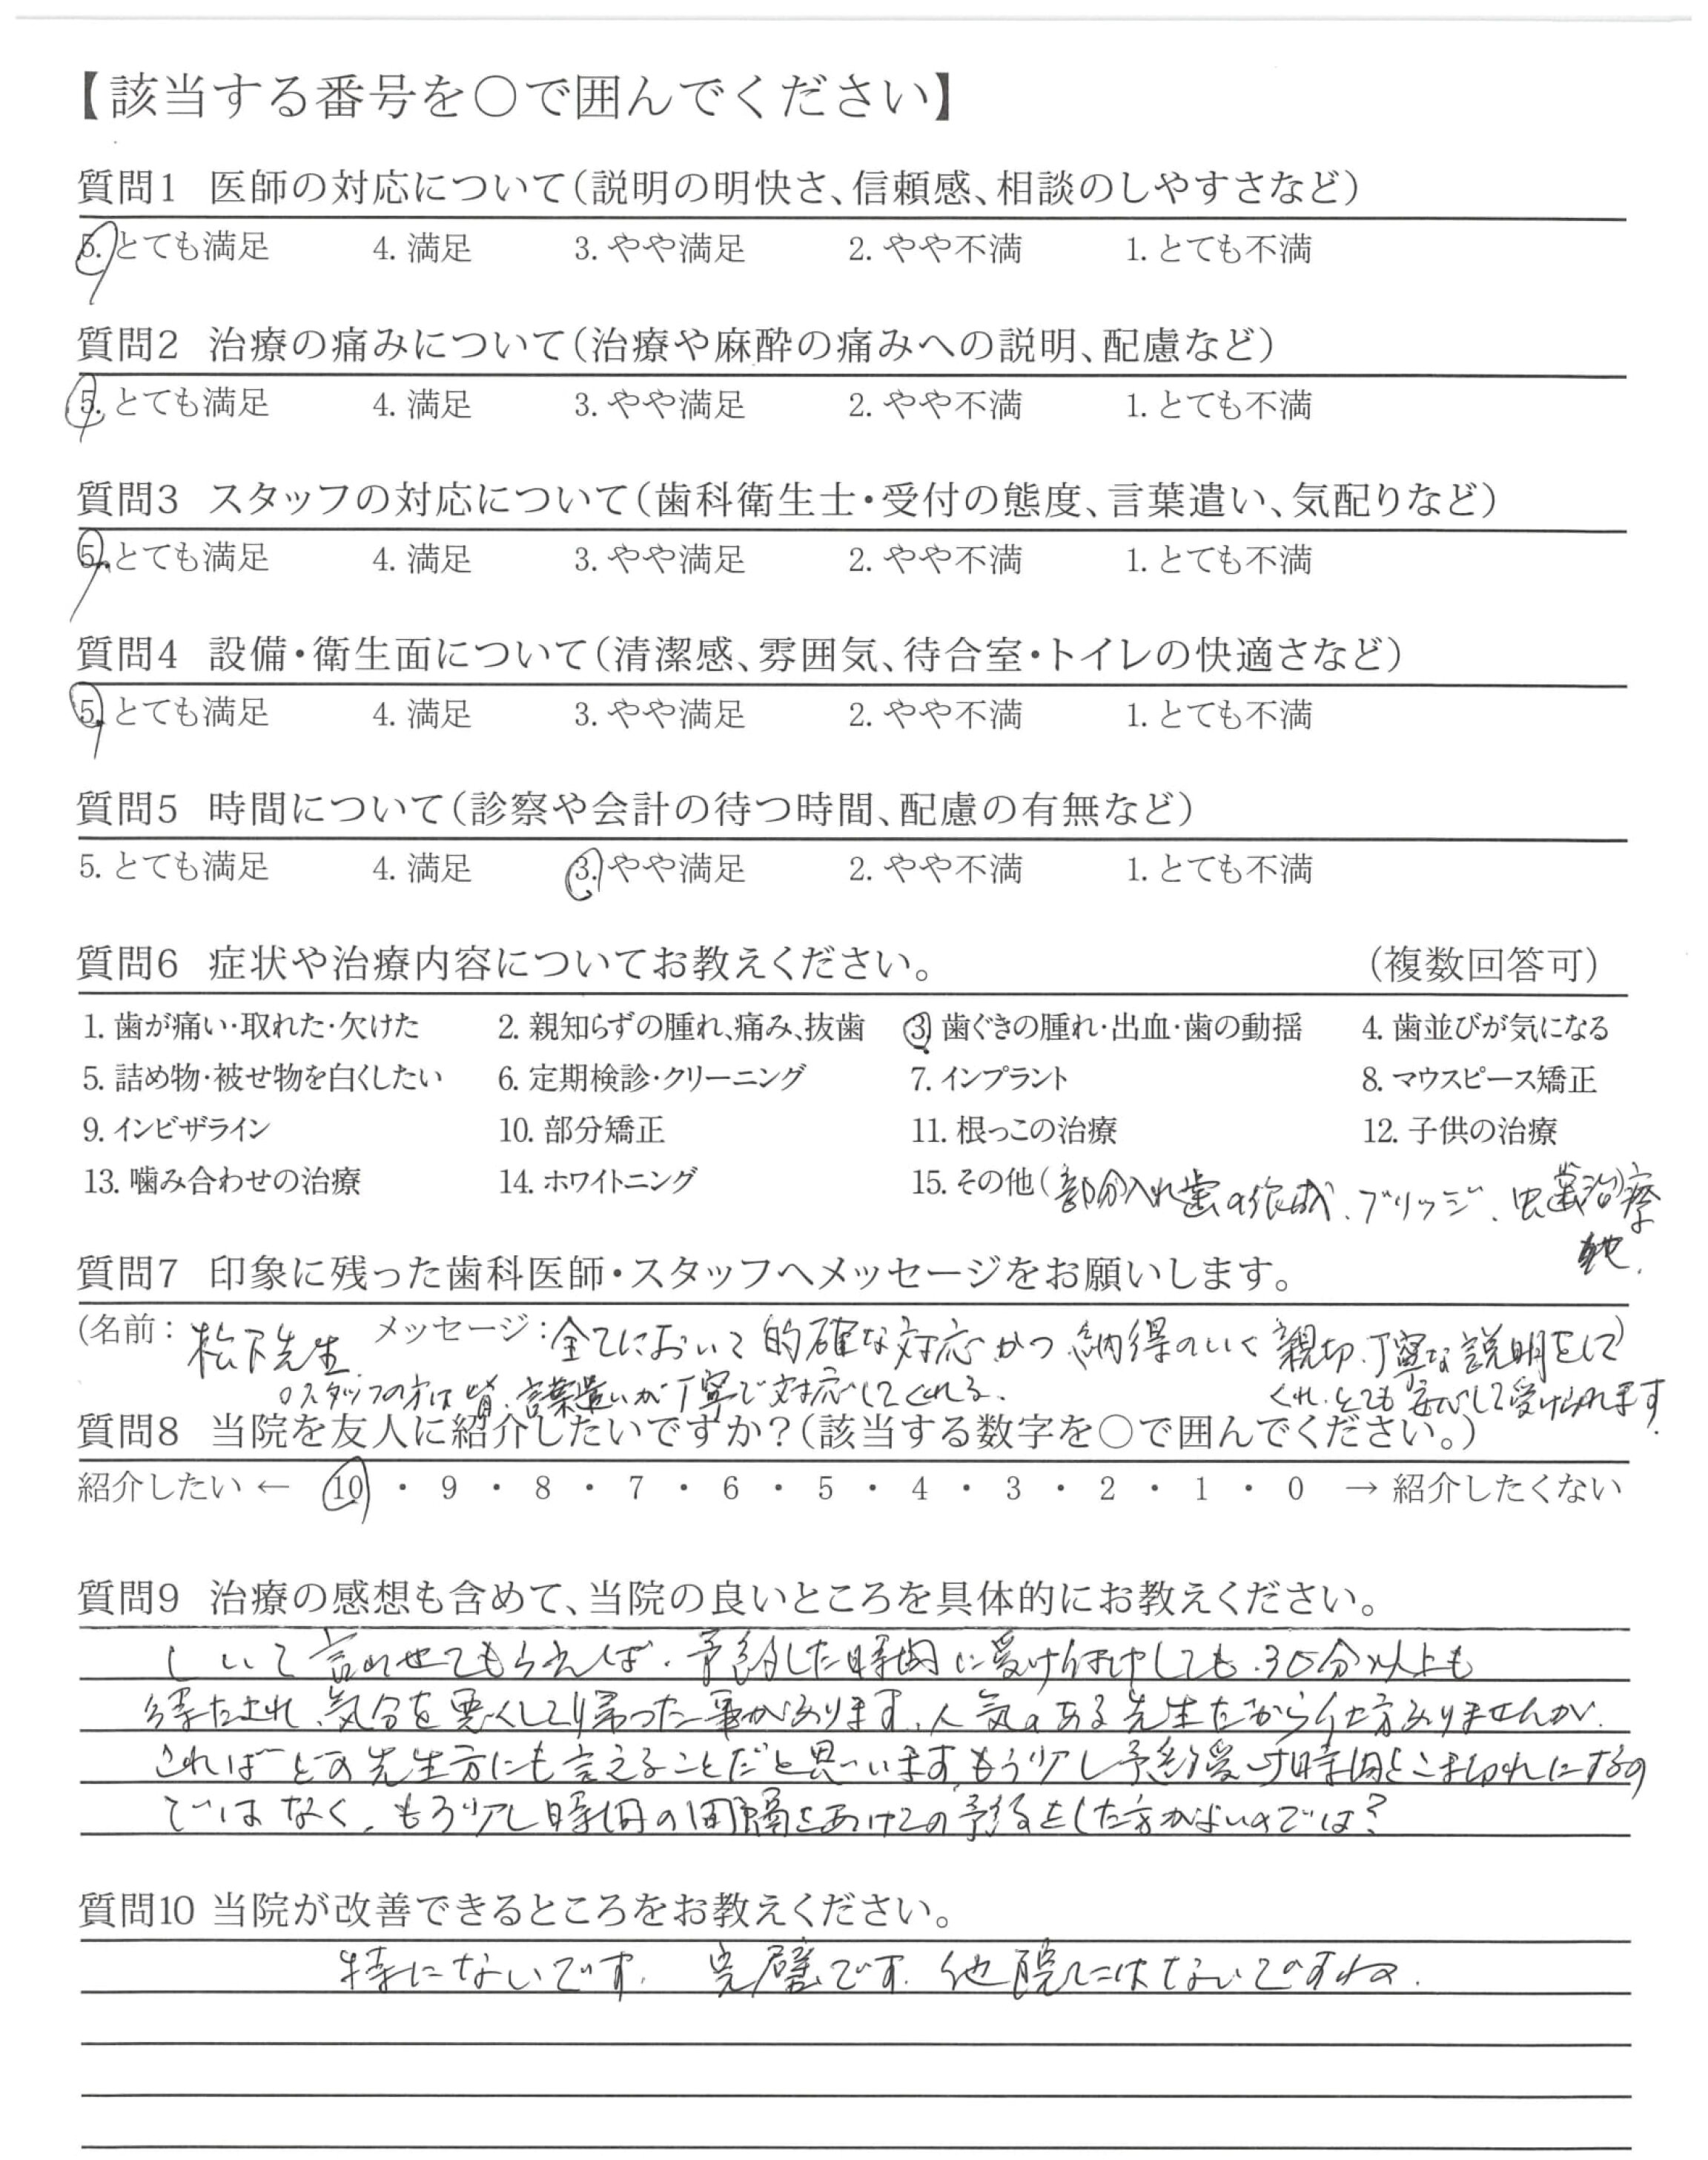 【該当する番号を○で囲んでください】
質問1 医師の対応について（説明の明快さ、信頼感、相談のしやすさなど）
5. とても満足 4. 満足 3. やや満足 2. やや不満 1. とても不満
質問2 治療の痛みについて（治療や麻酔の痛みへの説明、配慮など）
5. とても満足 4. 満足 3. やや満足 2. やや不満 1. とても不満
質問3 スタッフの対応について（歯科衛生士・受付の態度、言葉遣い、気配りなど）
5. とても満足 4. 満足 3. やや満足 2. やや不満 1. とても不満
質問4 設備・衛生面について（清潔感、雰囲気、待合室・トイレの快適さなど）
5. とても満足 4. 満足 3. やや満足 2. やや不満 1. とても不満
質問5 時間について（診察や会計の待つ時間、配慮の有無など）
5. とても満足 4. 満足 3. やや満足 2. やや不満 1. とても不満
質問6 症状や治療内容についてお教えください。 （複数回答可）
1. 歯が痛い・取れた・欠けた 2. 親知らずの腫れ、痛み、抜歯 3. 歯ぐきの腫れ・出血・歯の動揺 4. 歯並びが気になる
5. 詰め物・被せ物を白くしたい 6. 定期検診・クリーニング 7. インプラント 8. マウスピース矯正
9. インビザライン 10. 部分矯正 11. 根っこの治療 12. 子供の治療
13. 噛み合わせの治療 14. ホワイトニング 15. その他（部分入れ歯の作成、ブリッジ、虫歯治療）
他.
質問7 印象に残った歯科医師・スタッフへメッセージをお願いします。
（名前： 松下先生 メッセージ：全てにおいて的確な対応かつ納得のいく親切、丁寧な説明をして）
くれ、とても安心して受けられます.
○スタッフの方は皆、言葉遣いが丁寧で対応してくれる.
質問8 当院を友人に紹介したいですか？（該当する数字を○で囲んでください。）
紹介したい ← 10 ・ 9 ・ 8 ・ 7 ・ 6 ・ 5 ・ 4 ・ 3 ・ 2 ・ 1 ・ 0 → 紹介したくない
質問9 治療の感想も含めて、当院の良いところを具体的にお教えください。
しいて言わせてもらえば、予約した時間に受け付けしても、30分以上も
待たされ、気分を悪くして帰った事があります、人気のある先生だから仕方ありませんが、
こればどの先生方にも言えることだと思います、もう少し予約受付時間をこま切れにするの
ではなく、もう少し時間の間隔をあけての予約をした方がよいのでは？
質問10 当院が改善できるところをお教えください。
特にないです. 完璧です. 他院にはないですね.